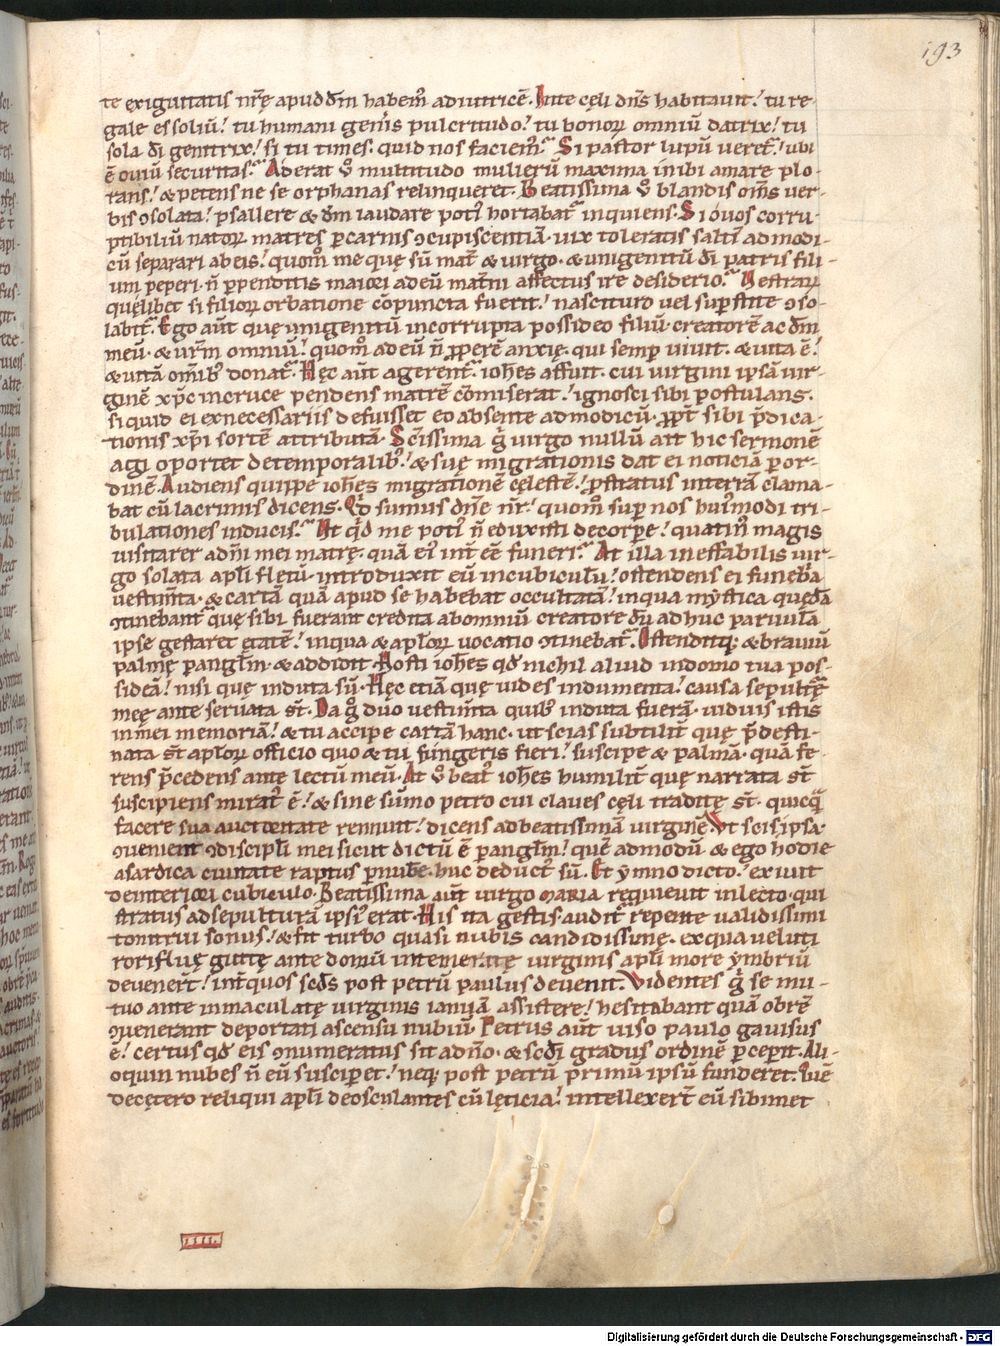 193
te exiguitatis nr̄ę apud dm̄ habem᷒ adiutricē. In te cęli dn̄s habitauit! tu re-
gale es soliū! tu humani gen̄is pulcritudo! tu bonoꝝ omniū datrix! tu
sola dī genitrix! si tu times. quid nos faciem᷒? Si pastor lupū ueret᷒! ubi
ē ouiū securitas? Aderat ū multitudo mulierū maxima inibi amare plo-
rans! & petens ne se orphanas relinqueret. Beatissima ū blandis om̄s uer-
bis ꝯsolata! psallere & dm̄ laudare poti᷒ hortabat᷒ inquiens. Si o uos corru-
ptibiliū natoꝝ matres ꝑ carnis ꝯcupiscentiā uix toleratis saltī ad modi-
cū separari ab eis! quom̄ me quę sū mat̄ & uirgo. & unigenitū dī patris fili-
um peperi. n̄ ꝑpenditis maiori ad eū mat̄ni affectus ire desiderio? Uestrarū
quęlibet si filioꝝ orbatione cōpuncta fuerit! nascituro uel sup̄stite ꝯso-
labit᷒. Ego aūt quę unigenitū incorrupta possideo filiū. creatorē ac dm̄
meū. & ur̄m omniū! quom̄ ad eū n̄ ꝓperē anxię. qui semp̄ uiuit. & uita ē!
& uitā om̄ib᷒ donat᷒. Hęc aūt agerent᷒. ioh̄es affuit. cui uirgini ipsā uir-
ginē xp̄c in cruce pendens matrē cōmiserat! ignosci sibi postulans.
si quid ei ex necessariis defuisset eo absente ad modicū. ꝓpt̄ sibi p̄dica-
tionis xp̄i sortē attributā. Sc̄issima g̊ uirgo nullū ait hic sermonē
agi oportet de temporalib᷒! & suę migrationis dat ei noticiā ꝑ or-
dinē. Audiens quippe ioh̄es migrationē cęlestē! ꝓstratus in terrā clama-
bat cū lacrimis dicens. Qd̄ sumus dn̄e nr̄! quom̄ sup̄ nos hui᷒modi tri-
bulationes inducis? Ut qd̄ me poti᷒ n̄ eduxisti de corꝑe! quatin᷒ magis
uisitarer a dn̄i mei matrę. quā ei᷒ int̄ eē funeri? At illa ineffabilis uir-
go solata apl̄i flętū. introduxit eū in cubiculū! ostendens ei funeb̄a
uestim̄ta. & cartā quā apud se habebat occultatā! in qua mystica quędā
ꝯtinebant᷒ quę sibi fuerant credita ab omniū creatore dū adhuc paruulā
ipse gestaret ętatē! in qua & apl̄oꝝ uocatio ꝯtinebat᷒. Ostenditq; & brauiū
palmę ꝑ angl̄m. & addidit. Nosti ioh̄es qd̄ nichil aliud in domo tua pos-
sideā! nisi quę induta sū. Hęc etiā quę uides indumenta! causa sepult̄ę
meę ante seruata st̄. Da g̊ duo uestim̄ta quib᷒ induta fuerā. uiduis istis
in mei memoriā! & tu accipe cartā hanc. ut scias subtilit᷒ quę p̄desti-
nata st̄ apl̄oꝝ officio quo & tu fungeris fieri! suscipe & palmā. quā fe-
rens p̄cedens ante lectū meū. At ū beat᷒ ioh̄es humilit᷒ quę narrata st̄
suscipiens mirat᷒ ē! & sine sūmo petro cui claues cęli traditę st̄. quicq̄
facere sua auctoritate rennuit! dicens ad beatissimā uirginē. Ut scis ipsa.
ꝯuenient ꝯdiscipl̄i mei sicut dictū ē ꝑ angl̄m! quē admodū & ego hodie
a sardica ciuitate raptus ꝑ nubē. huc deduct᷒ sū. Et ymno dicto! exiuit
de interiori cubiculo. Beatissima aūt uirgo MARIA requieuit in lecto. qui
stratus ad sepulturā ipsi᷒ erat. His ita gestis. audit᷒ repente ualidissimi
tonitrui sonus! & fit turbo quasi nubis candidissimę. ex qua ueluti
roriflug guttę ante domū intemeratę uirginis apl̄i more ymbriū
deuener̄t! int̄ quos scd̄s post petrū paulus deuenit. Videntes g̊ se mu-
tuo ante inmaculatę uirginis ianuā assistere! hesitabant quā ob rē
ꝯuenerant deportati ascensu nubiū. Petrus aūt uiso paulo gauisus
ē! certus qd̄ eis ꝯnumeratus sit a dn̄o. & scd̄i gradus ordinē ꝑceꝑit. Ali-
oquin nubes n̄ eū susciperet! neq; post petrū primū ipsū funderet. Tūc
de cętero reliqui apl̄i deosculantes cū lęticia! intellexer̄t eū sibimet
IIII.
Digitalisierung gefördert durch die Deutsche Forschungsgemeinschaft - DFG